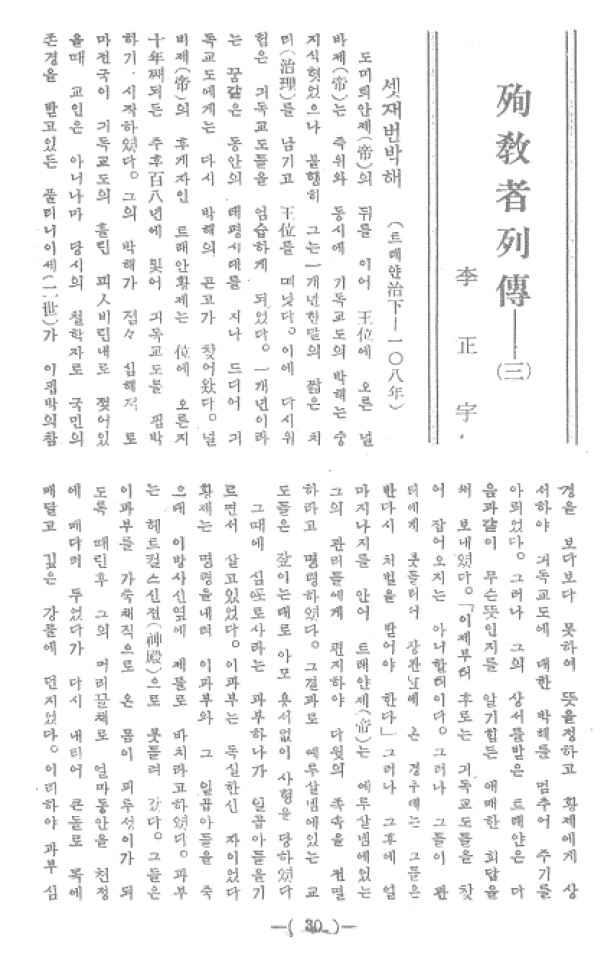 殉敎者列傳――(三)
李正宇
셋재번박해 (트래얀治下―一〇八年)
도미틔안제(帝)의 뒤를 이어 王位에 오른 널
바제(帝)는 즉위와 동시에 기독교도의 박해는 중
지식혓었으나 불행히 그는一개년한달의 짧은 치
티(治理)를 남기고 王位를 떠낫다。이에 다시위
험은 긔독교도들을 엄습하게 되었다。一개년이라
는 꿈같은 동안의 태평시대를 지나 드디어 긔
독교도에게는 다시 박해의 곤고가 찾어왔다。널
바제(帝)의 후게자인 트래안황제는 位에 오른지
十年째되든 주후百八년에 및어 긔독교도를 핍박
하기 시작하였다。그의 박해가 점々 심해저 로
마전국이 긔독교도의 흘린 피人비린내로 젖어있
을때 교인은 아니나마 당시의 철학자로 국민의
존경을 받고있든 풀리니이세(二世)가 이핍박의참
경을 보다보다 못하여 뜻을정하고 황제에게 상
서하야 긔독교도에 대한 박해를 멈추어 주기를
아뢰었다。그러나 그의 상서를받은 트래얀은 다
음과같이 무슨뜻인지를 알기힘든 애매한 회답을
써 보내였다。「이제부터 후로는 긔독교도들을 찾
어 잡어오지는 아니할터이다。그러나 그들이 관
터에게 붓들러어 장관앞에 온 경우에는 그들은
반다시 처벌을 받어야 한다」그러나 그후에 얼
마지나지를 안어 트래얀제(帝)는 예루살넴에있는
그의 관리들에게 편지하야 다윗의 족속을 전멸
하라고 명령하였다。그결과로 예루살넴에있는 교
도들은 잡이는대로 아모 용서없이 사형을 당하였다
그때에 심포로사라는 과부하나가 일곱아들을기
르면서 살고있었다。이과부는 독실한신 자이었다
황제는 명령을내려 이과부와 그 일곱아들을 축
으데 이방사신옆에 제물로 바치라고하였다。과부
는 헤트컬스신전(神殿)으로 붓들려 갔다。그들은
이과부를 가죽채직으로 온 몸이 피투성이가 되
도록 때린후 그의 머리끌채로 얼마동안을 천정
에 매다러 두었다가 다시 내티어 큰돌로 목에
매달고 깊은 강물에 던지었다。이리하야 과부 심
―( 30 )―